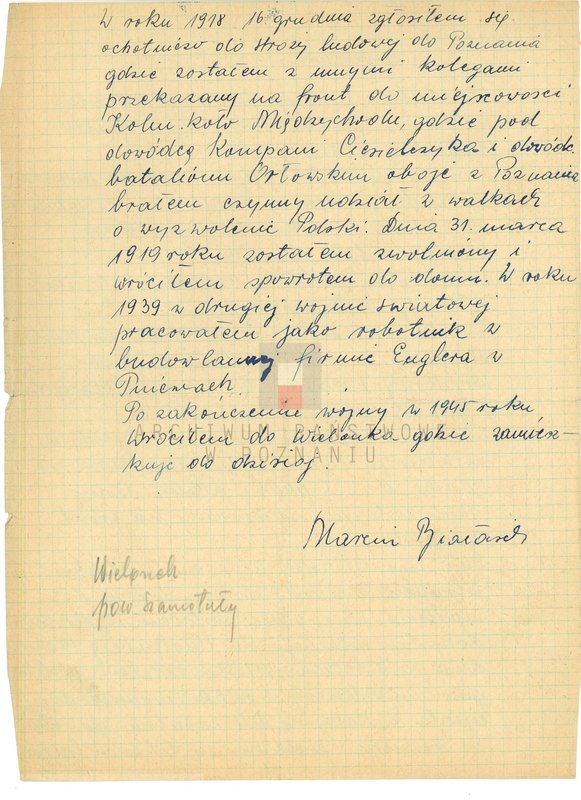 W roku 1918 16 grudnia zgłosiłem się
ochotniczo do straży ludowej do Poznania
gdzie zostałem z innymi kolegami
przekazany na front do miejscowości
Kolno koło Międzychodu, gdzie pod
dowódcą Kompani Ciesielczyka i dowódc.
bataljonu Orłowskim oboje z Poznania
brałem czynny udział w walkach
o wyzwolenie Polski. Dnia 31. marca
1919 roku zostałem zwolniony i
wróciłem spowrotem do domu. W roku
1939 w drugiej wojnie światowej
pracowałem jako robotnik w
budowlannej firmie Englera w
Pniewach
Po zakończenie wojny w 1945 roku
wróciłem do Wielonka gdzie zamiesz-
kuje do dzisiaj.
ARCHIWUM PAŃSTWOWE
W POZNANIU
Marcin
Wielonek
pow Szamotuły